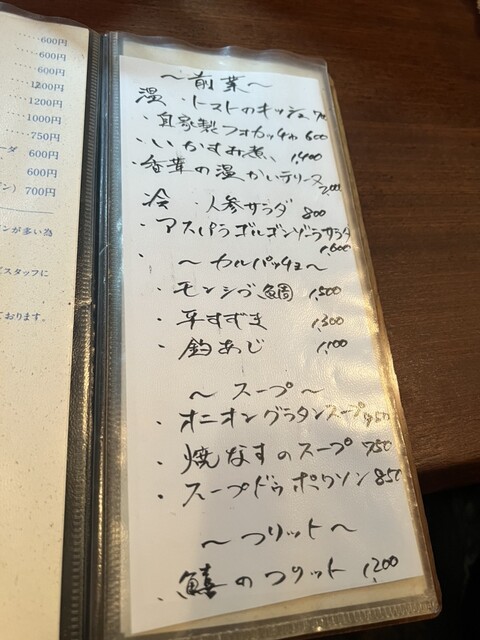 ……600円
……600円
……600円
……1200円
……1200円
……1000円
……750円
ーダ 600円
600円
ン) 700円
ンが多い為
スタッフに
ております。
～前菜～
温 ・トーストのキッシュ
・自家製フォカッチャ 600
・いかすみ煮 1,400
・香茸の温かいテリーヌ
冷 ・人参サラダ 800
・アスパラゴルゴンゾーラサラダ
1,600
・ ～カルパッチョ～
・モンシゴ鯛 1,500
・平すずき 1,300
・釣あじ 1,100
～スープ～
・オニオングラタンスープ
・焼なすのスープ 750
・スープドゥポワソン 850
～フリット～
・鱚のフリット 1,200